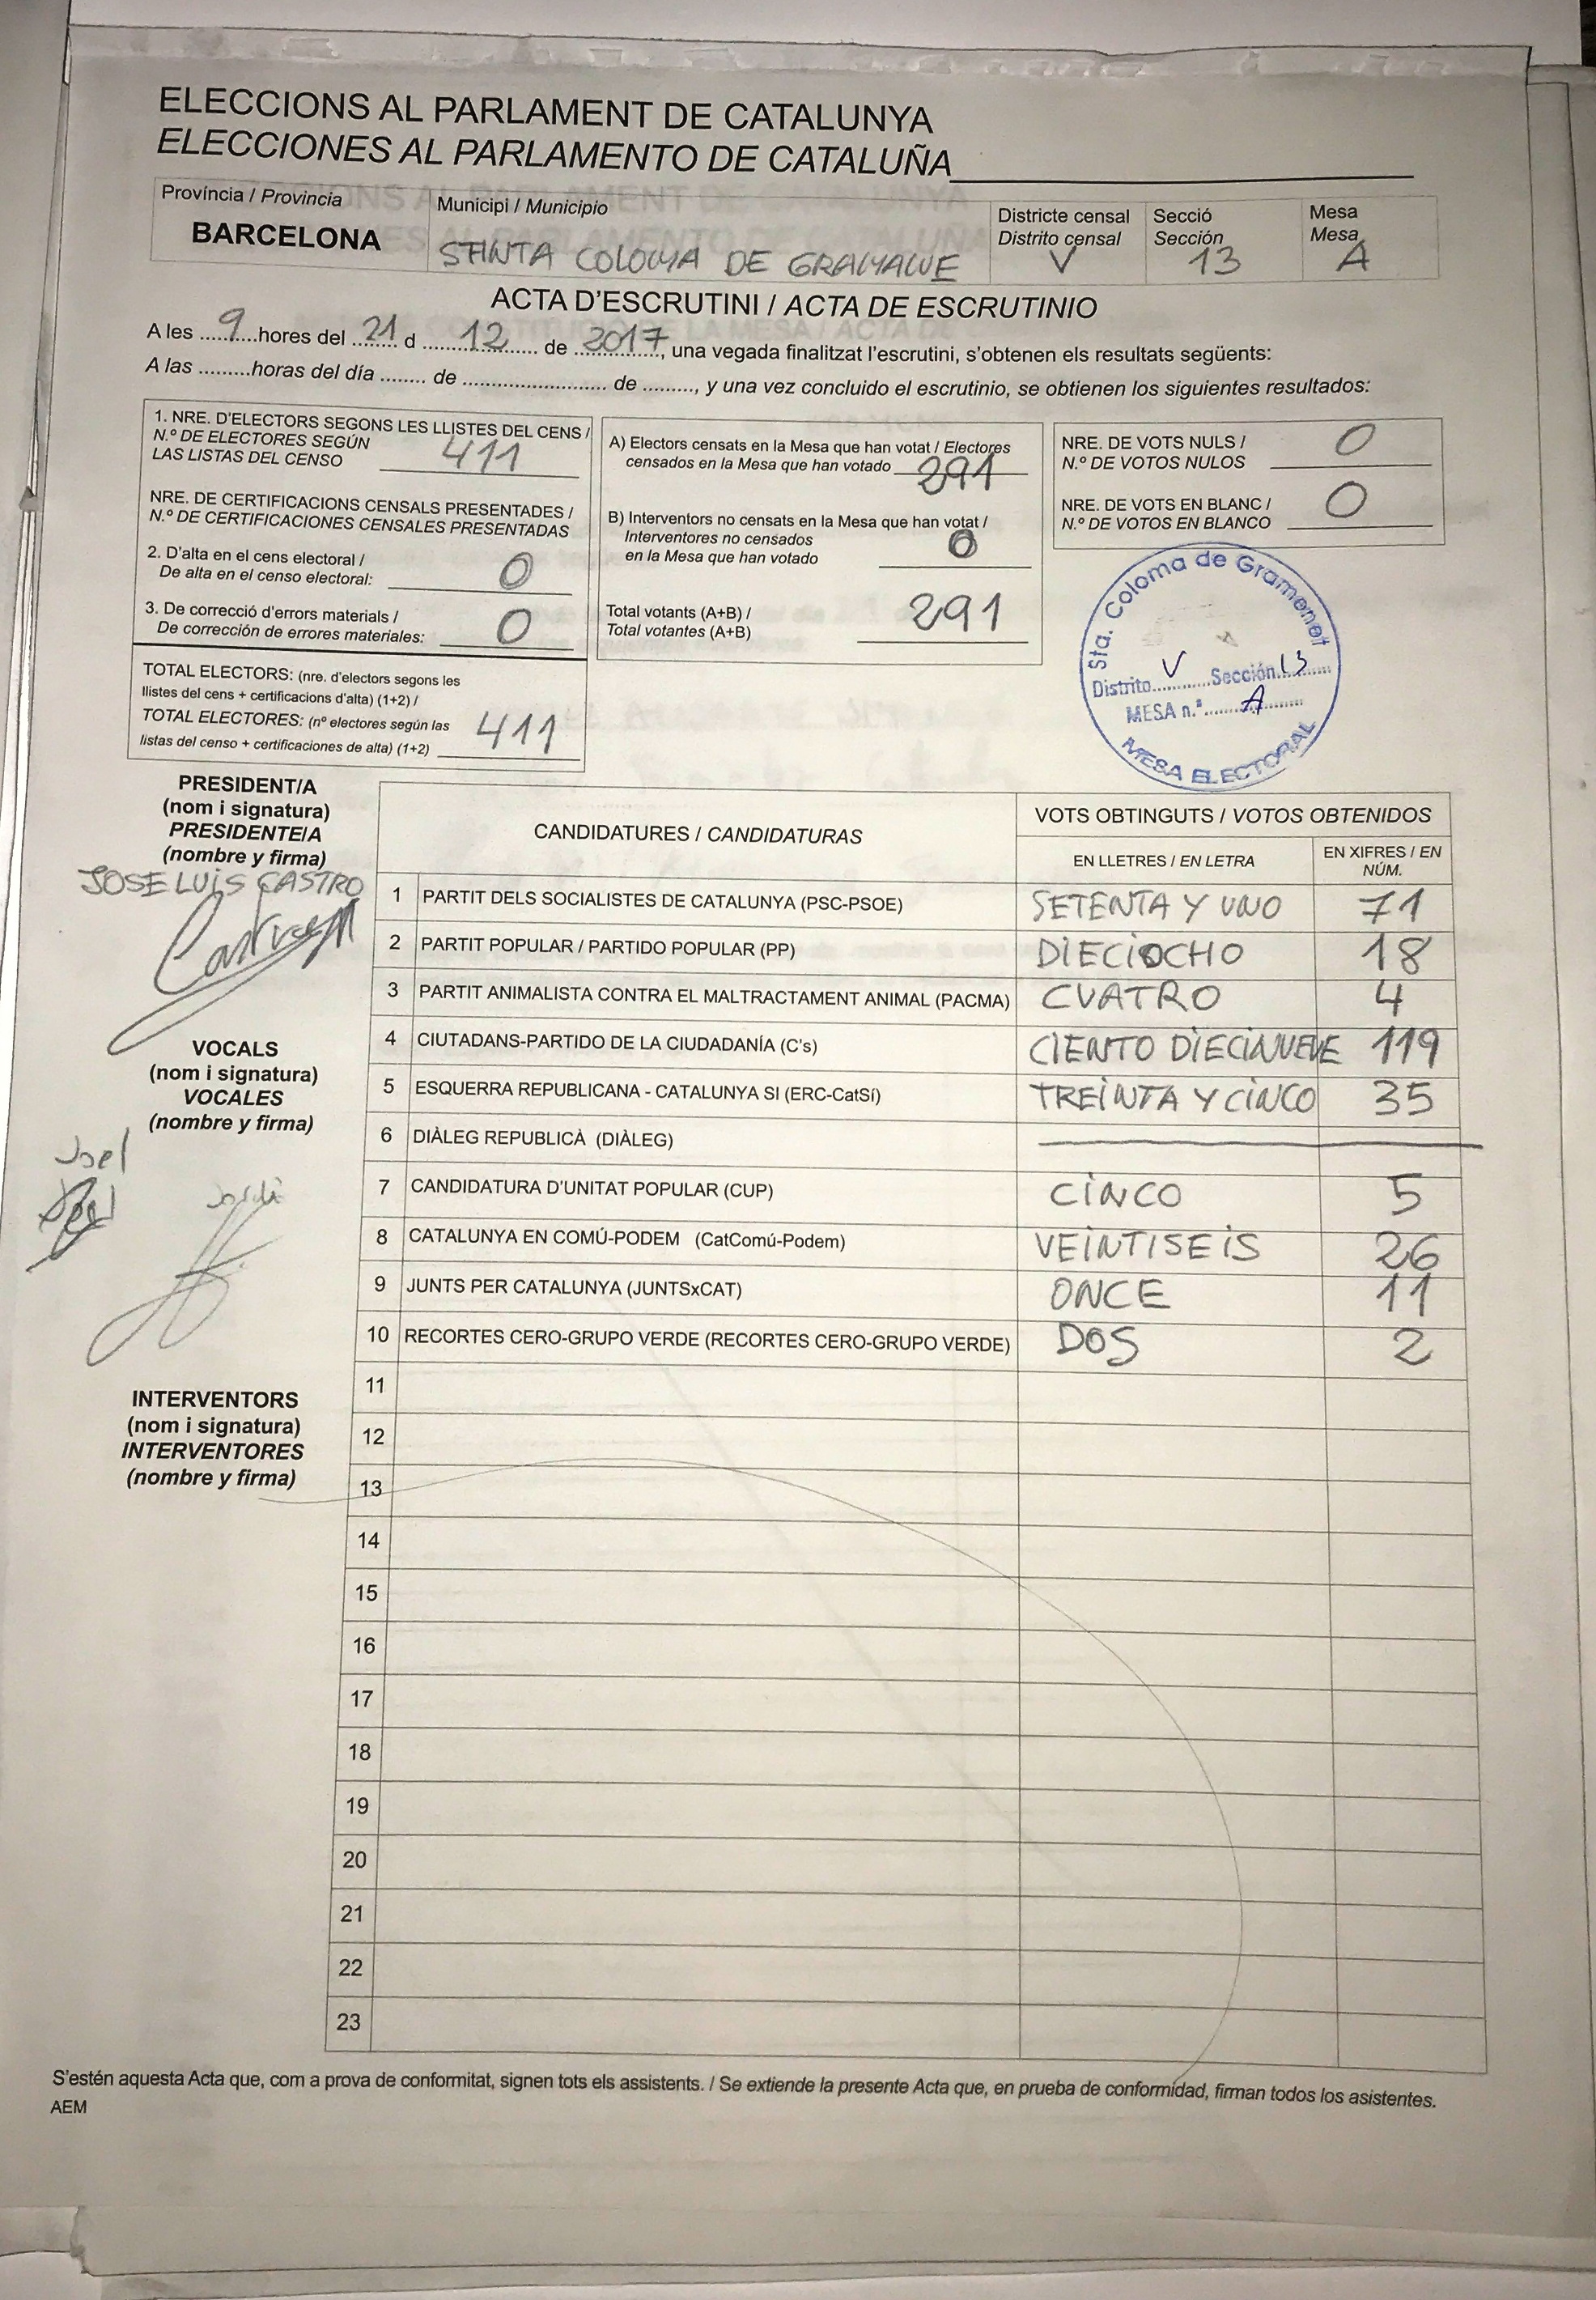 ELECCIONS AL PARLAMENT DE CATALUNYA
ELECCIONES AL PARLAMENTO DE CATALUÑA
Província / Provincia
BARCELONA
Municipi / Municipio
SANTA COLOMA DE GRAMANE
Districte censal
Distrito censal
V
Secció
Sección
13
Mesa
Mesa
A
ACTA D'ESCRUTINI / ACTA DE ESCRUTINIO
A les 9 hores del 21 d 12 de 2017, una vegada finalitzat l'escrutini, s'obtenen els resultats següents:
A las .........horas del día ........ de .......................... de ........., y una vez concluido el escrutinio, se obtienen los siguientes resultados:
1. NRE. D'ELECTORS SEGONS LES LLISTES DEL CENS /
N.º DE ELECTORES SEGÚN
LAS LISTAS DEL CENSO 411
NRE. DE CERTIFICACIONS CENSALS PRESENTADES /
N.º DE CERTIFICACIONES CENSALES PRESENTADAS
2. D'alta en el cens electoral /
De alta en el censo electoral: 0
3. De correcció d'errors materials /
De corrección de errores materiales: 0
TOTAL ELECTORS: (nre. d'electors segons les
llistes del cens + certificacions d'alta) (1+2) /
TOTAL ELECTORES: (nº electores según las
listas del censo + certificaciones de alta) (1+2) 411
A) Electors censats en la Mesa que han votat / Electores
censados en la Mesa que han votado 291
B) Interventors no censats en la Mesa que han votat /
Interventores no censados
en la Mesa que han votado 0
Total votants (A+B) /
Total votantes (A+B) 291
NRE. DE VOTS NULS /
N.º DE VOTOS NULOS 0
NRE. DE VOTS EN BLANC /
N.º DE VOTOS EN BLANCO 0
Sta. Coloma de Gramenet
Distrito V Sección 13
MESA n.º A
MESA ELECTORAL
PRESIDENT/A
(nom i signatura)
PRESIDENTE/A
(nombre y firma)
JOSE LUIS CASTRO
VOCALS
(nom i signatura)
VOCALES
(nombre y firma)
Joel
Jordi
INTERVENTORS
(nom i signatura)
INTERVENTORES
(nombre y firma)
CANDIDATURES / CANDIDATURAS
VOTS OBTINGUTS / VOTOS OBTENIDOS
EN LLETRES / EN LETRA
EN XIFRES / EN
NÚM.
1 PARTIT DELS SOCIALISTES DE CATALUNYA (PSC-PSOE) SETENTA Y UNO 71
2 PARTIT POPULAR / PARTIDO POPULAR (PP) DIECIOCHO 18
3 PARTIT ANIMALISTA CONTRA EL MALTRACTAMENT ANIMAL (PACMA) CUATRO 4
4 CIUTADANS-PARTIDO DE LA CIUDADANÍA (C's) CIENTO DIECINUEVE 119
5 ESQUERRA REPUBLICANA - CATALUNYA SI (ERC-CatSí) TREINTA Y CINCO 35
6 DIÀLEG REPUBLICÀ (DIÀLEG)
7 CANDIDATURA D'UNITAT POPULAR (CUP) CINCO 5
8 CATALUNYA EN COMÚ-PODEM (CatComú-Podem) VEINTISEIS 26
9 JUNTS PER CATALUNYA (JUNTSxCAT) ONCE 11
10 RECORTES CERO-GRUPO VERDE (RECORTES CERO-GRUPO VERDE) DOS 2
11
12
13
14
15
16
17
18
19
20
21
22
23
S'estén aquesta Acta que, com a prova de conformitat, signen tots els assistents. / Se extiende la presente Acta que, en prueba de conformidad, firman todos los asistentes.
AEM